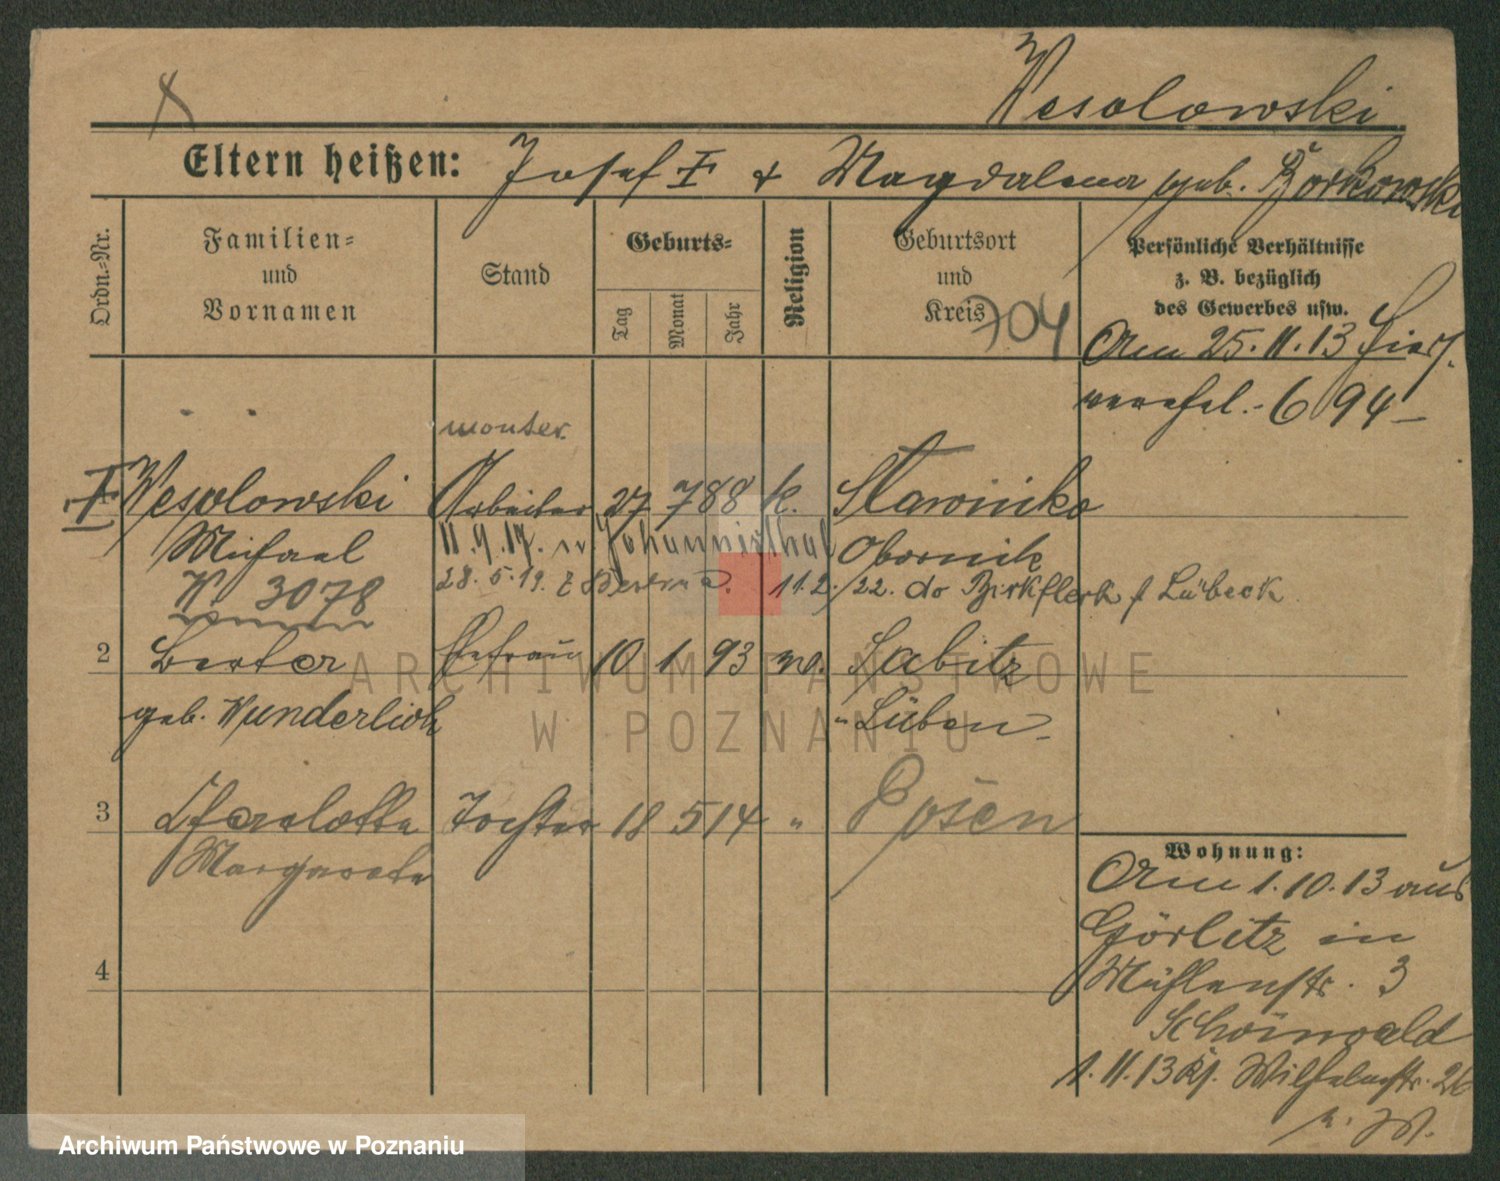 Wesolowski
Eltern heißen: Josef & Magdalena geb. Borkowski
Ordn.-Nr.
Familien-
und
Vornamen
Stand
Geburts-
Tag
Monat
Jahr
Religion
Geburtsort
und
Kreis
704
Persönliche Verhältnisse
z. B. bezüglich
des Gewerbes usw.
Am 25.11.13 hier
694
monter
Wesolowski Arbeiter 27 7 88 k. Slawinko
Michael 11.9.17. Johannisthal Obornik
3078 28.5.19. 11.2.22. do Lübeck
2 Berta Ehefrau 10 1 93 Sabitz
geb. Wunderlich Lüben
3 Charlotte Tochter 18 5 14 " Posen
Margarete
4
Wohnung:
Am 1.10.13 aus
Görlitz in
Mühlenstr. 3
Schönwald
1.11.13 Wilhelmstr. 26
ARCHIWUM PAŃSTWOWE
W POZNANIU
Archiwum Państwowe w Poznaniu